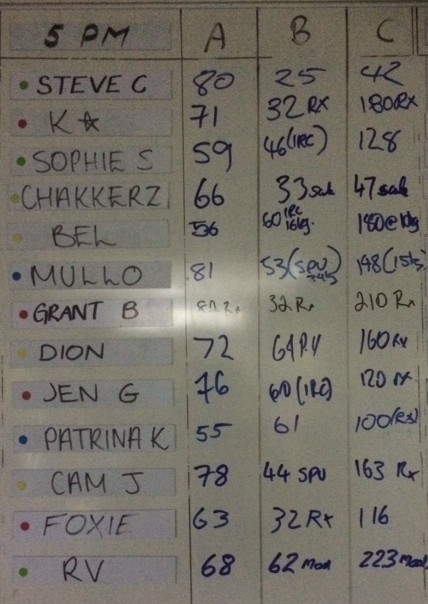 5 PM A B C
STEVE C 80 25 42
K ☆ 71 32 RX 180RX
SOPHIE S 59 46(1RC) 128
CHAKKERZ 66 33 scale 47 scale
BEL 56 60 1RC 16kg. 180@10kg
MULLO 81 53(SPU) 148(15
GRANT B 32 Rx 210 Rx
DION 72 64 RX 160 Rx
JEN G 76 60(1RC) 120 rx
PATRINA K 55 61 100(RX)
CAM J 78 44 SPU 163 Rx
FOXIE 63 32 RX 116
RV 68 62 Mod 223 Mod